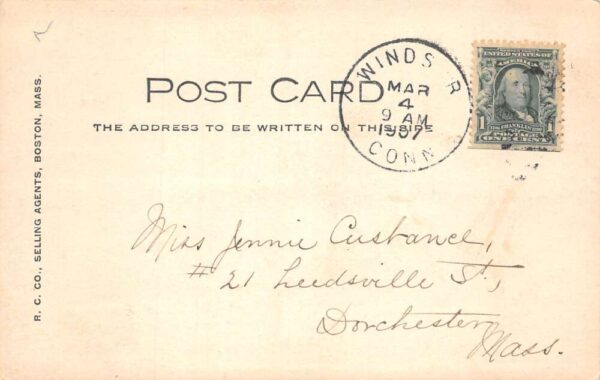 POST CARD
THE ADDRESS TO BE WRITTEN ON THIS SIDE
WINDSOR
MAR
4
9 AM
1907
CONN
UNITED STATES OF
AMERICA
1 1
POSTAGE
ONE CENT
R. C. CO., SELLING AGENTS, BOSTON, MASS.
Miss Jennie Custance,
#21 Leedsville St,
Dorchester,
Mass.